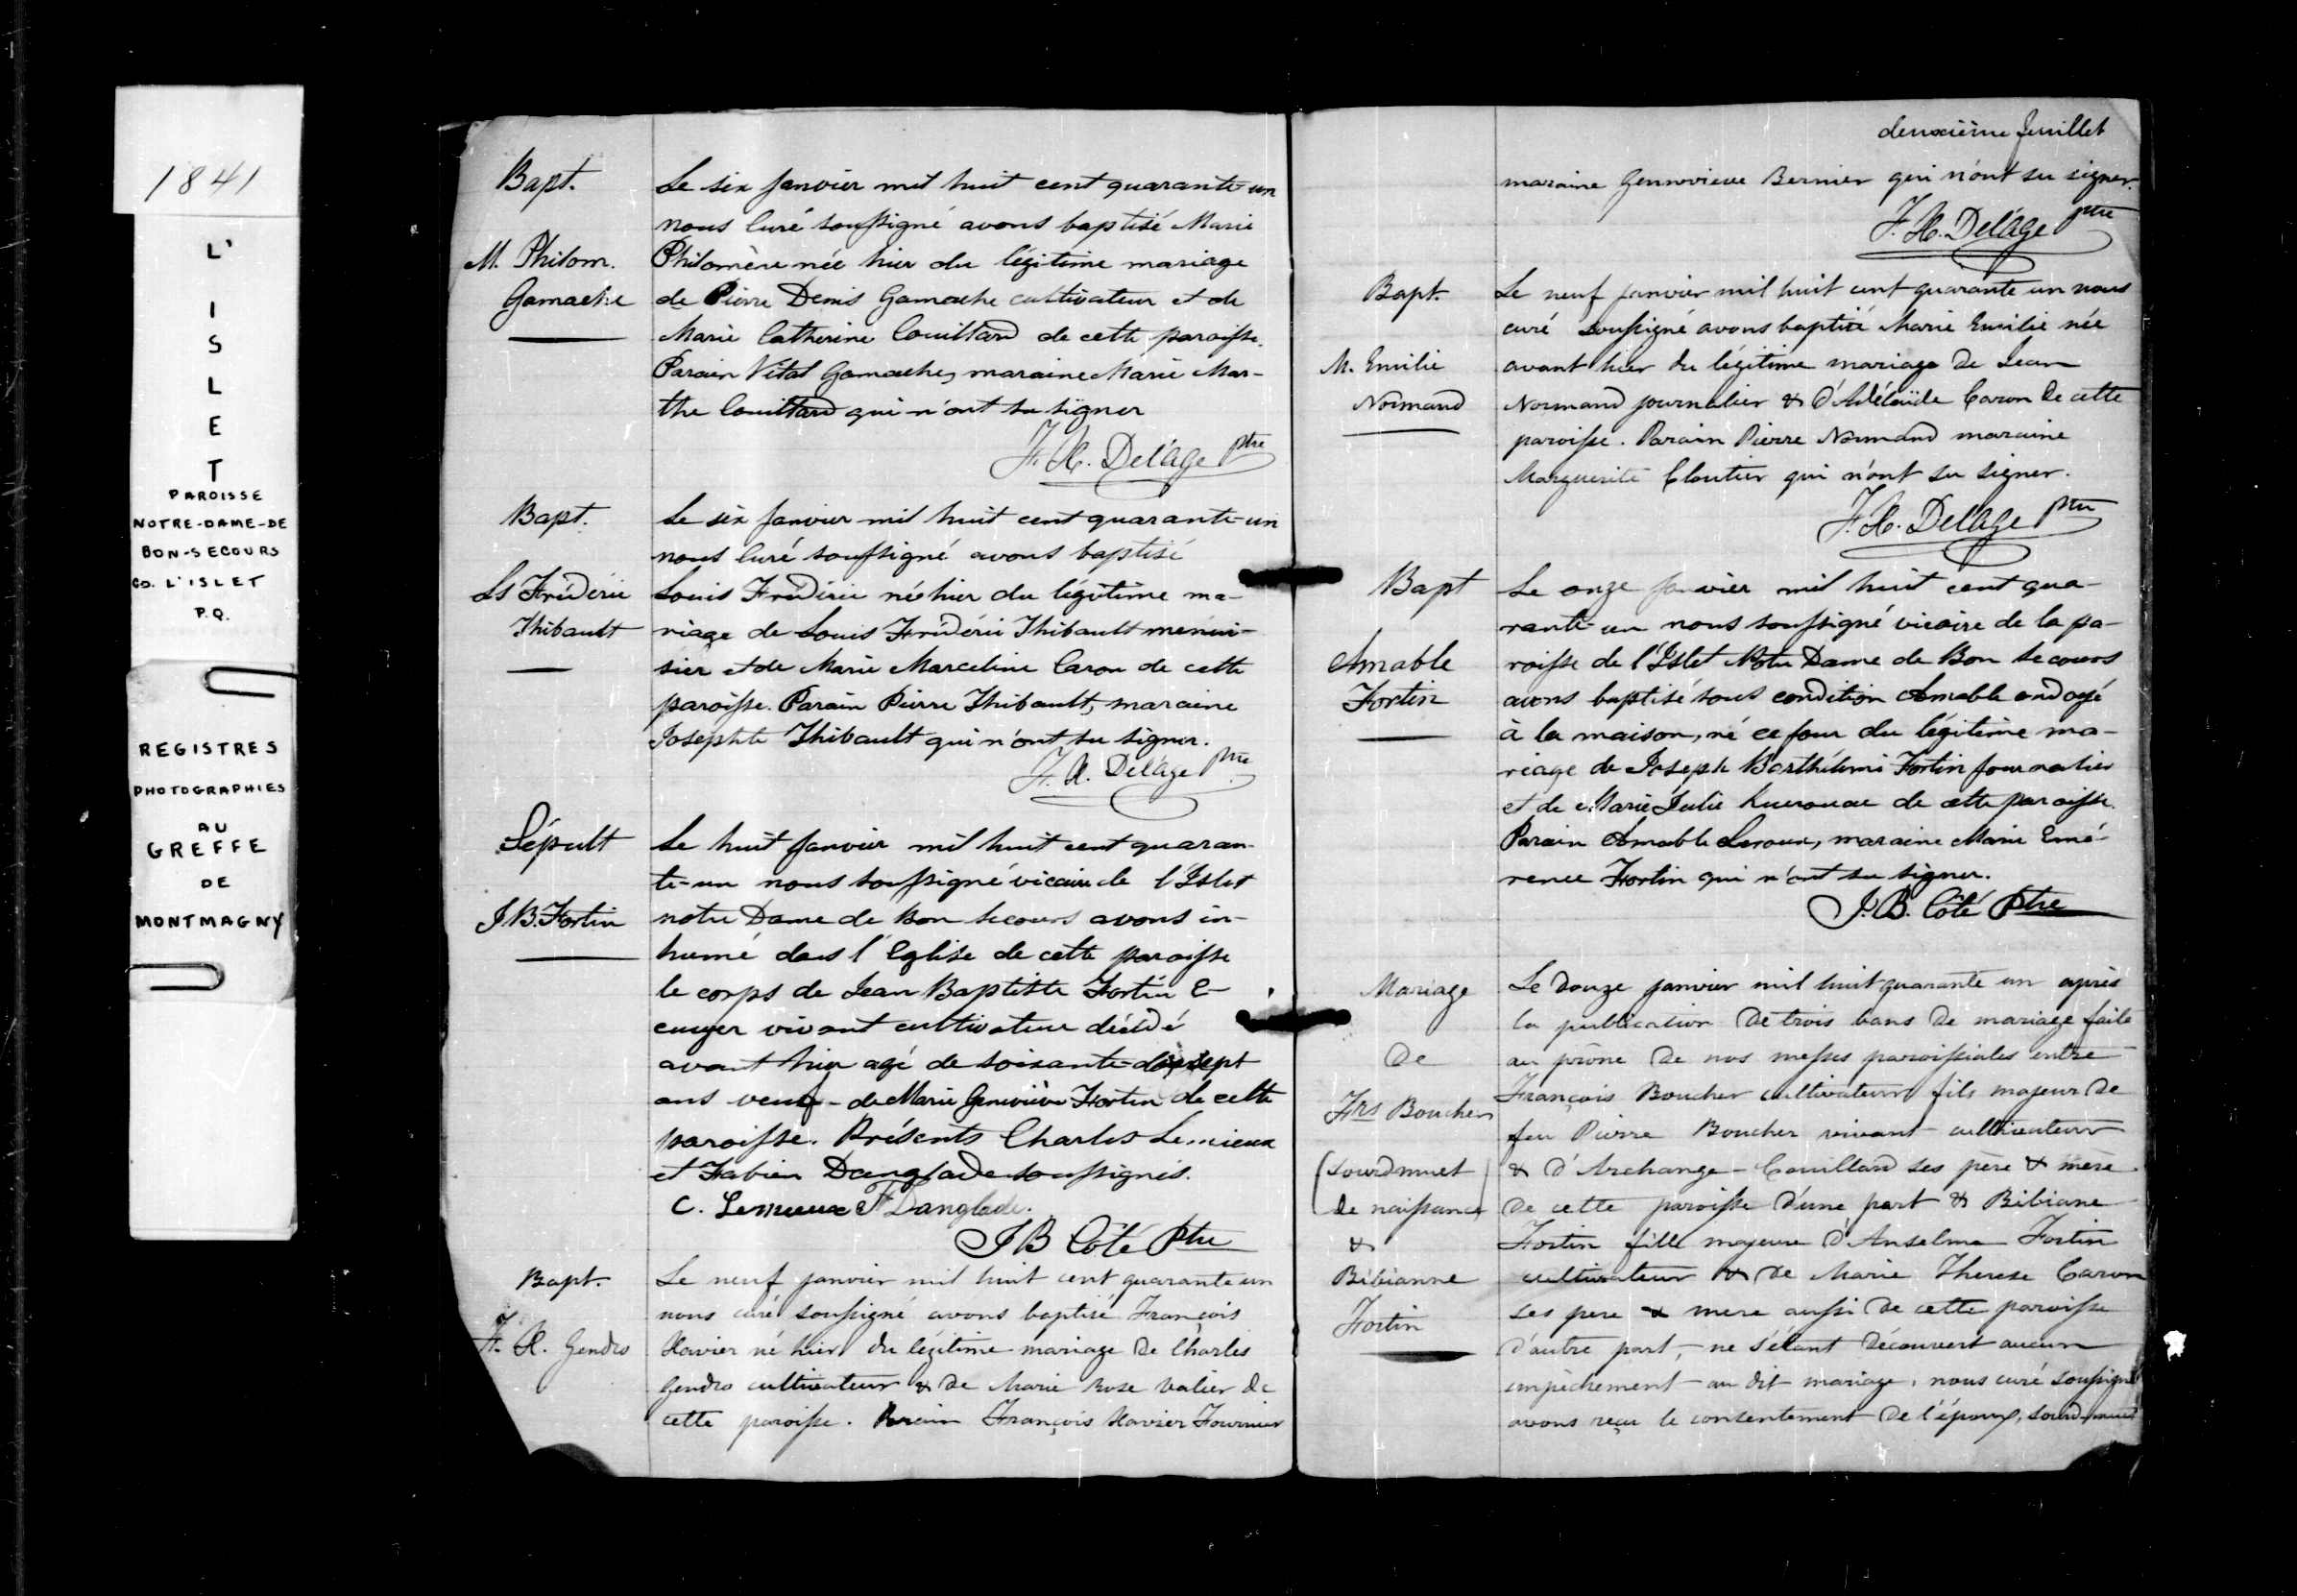 1841
L'
I
S
L
E
T
PAROISSE
NOTRE-DAME-DE
BON-SECOURS
CO. L'ISLET
P.Q.
REGISTRES
PHOTOGRAPHIES
AU
GREFFE
DE
MONTMAGNY
Bapt.
M. Philom.
Gamache
Le six janvier mil huit cent quarante-un
nous Curé soussigné avons baptisé Marie
Philomène née hier du légitime mariage
de Pierre Denis Gamache cultivateur et de
Marie Catherine Couillard de cette paroisse.
Parain Vital Gamache, maraine Marie Mar-
the Couillard qui n'ont su signer
F. X. Delâge Ptre
Bapt.
Ls Fréderic
Thibault
Le six janvier mil huit cent quarante-un
nous Curé soussigné avons baptisé
Louis Fréderic né hier du légitime ma-
riage de Louis Fréderic Thibault menui-
sier et de Marie Marceline Caron de cette
paroisse. Parain Pierre Thibault, maraine
Josephte Thibault qui n'ont su signer.
F. X. Delâge Ptre
Sépult
J.B. Fortin
Le huit janvier mil huit cent quaran-
te-un nous soussigné vicaire de l'Islet
notre Dame de Bon Secours avons in-
humé dans l'Eglise de cette paroisse
le corps de Jean Baptiste Fortin E-
cuyer vivant cultivateur décédé
avant hier agé de soixante-dix-sept
ans veuf de Marie Geneviève Fortin de cette
paroisse. Présents Charles Lemieux
et Fabien Danglade soussignés.
C. Lemieux F Danglade.
J B Côté Ptre
Bapt.
F. X. Gendro
Le neuf janvier mil huit cent quarante un
nous curé soussigné avons baptisé François
Xavier né hier du légitime mariage de Charles
Gendro cultivateur & de Marie Rose Valier de
cette paroisse. Parain François Xavier Fournier
deuxième feuillet
maraine Genevieve Bernier qui n'ont su signer.
F. X. Delâge Ptre
Bapt.
M. Emilie
Normand
Le neuf janvier mil huit cent quarante un nous
curé soussigné avons baptisé Marie Emilie née
avant hier du légitime mariage de Jean
Normand journalier & d'Adélaïde Caron de cette
paroisse. Parain Pierre Normand maraine
Marguerite Cloutier qui n'ont su signer.
F. X. Delâge Ptre
Bapt
Amable
Fortin
Le onze janvier mil huit cent qua-
rante-un nous soussigné vicaire de la pa-
roisse de l'Islet Notre Dame de Bon Secours
avons baptisé sous condition Amable ondoyé
à la maison, né ce jour du légitime ma-
riage de Joseph Barthélemi Fortin journalier
et de Marie Julie de cette paroisse.
Parain Amable maraine Marie Emé-
rence Fortin qui n'ont su signer.
J. B. Côté Ptre
Mariage
de
Frs Boucher
(sourd muet
de naissance)
&
Bibianne
Fortin
Le douze janvier mil huit quarante un après
la publication de trois bans de mariage faite
au prône de nos messes paroissiales entre
François Boucher cultivateur fils majeur de
feu Pierre Boucher vivant cultivateur
& d'Archange Couillard ses père & mère
de cette paroisse d'une part & Bibiane
Fortin fille majeure d'Anselme Fortin
cultivateur & de Marie Therese Caron
ses pere & mere aussi de cette paroisse
d'autre part, ne s'étant découvert aucun
empêchement au dit mariage, nous curé soussigné
avons reçu le consentement de l'époux, sourd-muet